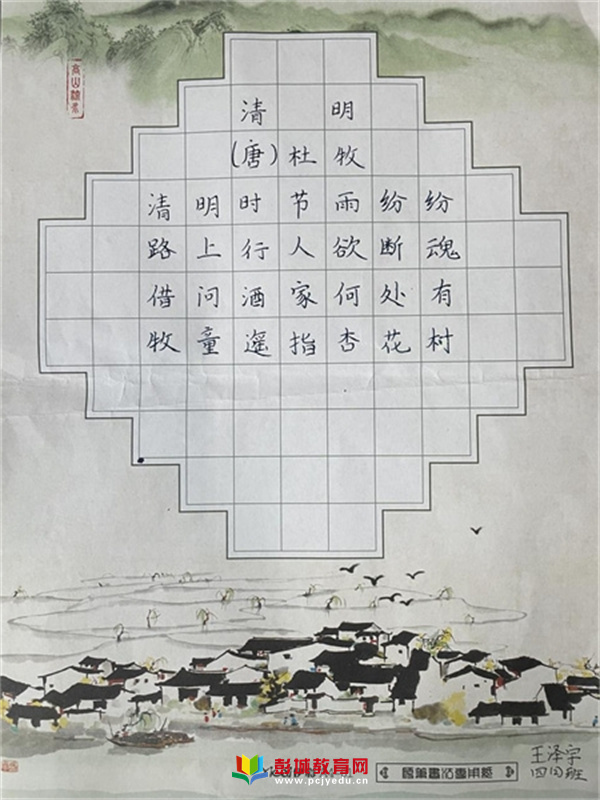 清明
(唐)杜牧
清明时节雨纷纷
路上行人欲断魂
借问酒家何处有
牧童遥指杏花村
王泽宇
彭城教育网
www.pcjyedu.cn